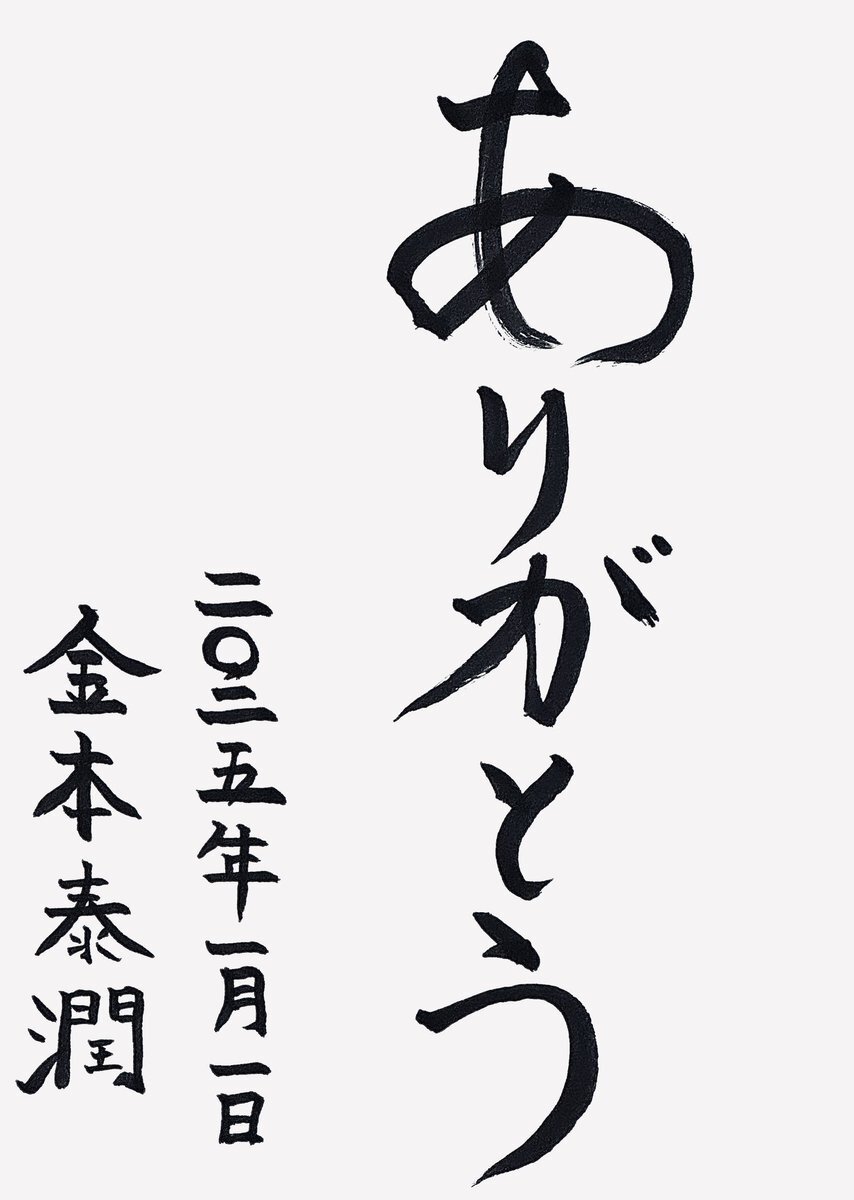 ありがとう
二〇二五年一月一日
金本泰潤